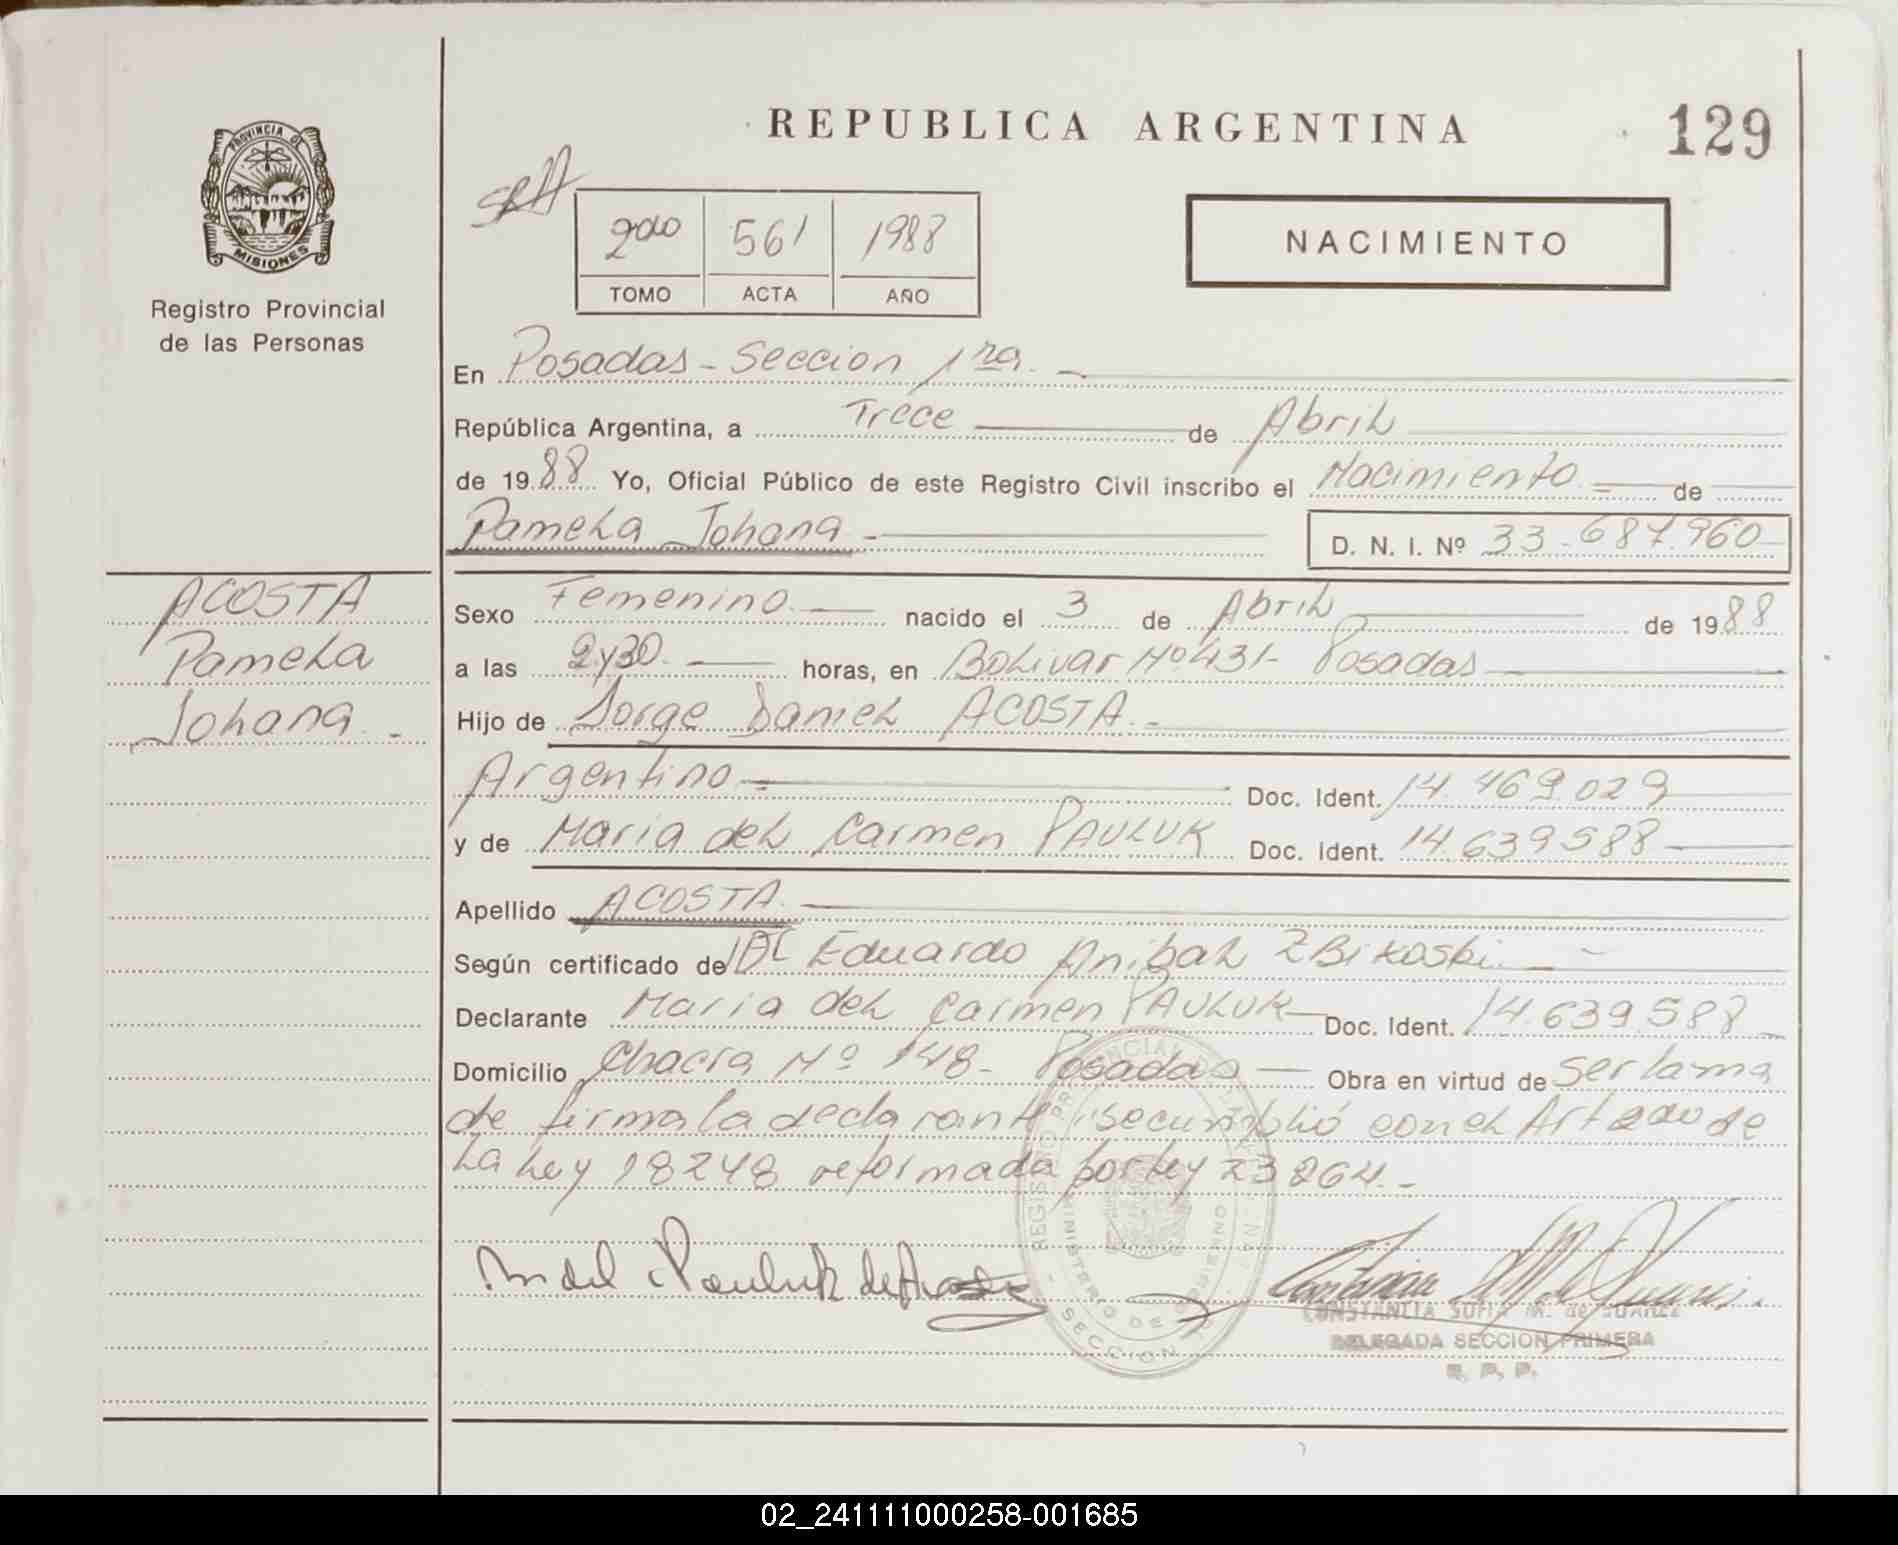 REPUBLICA ARGENTINA
129
PROVINCIA DE
MISIONES
Registro Provincial
de las Personas
2do 561 1988
TOMO ACTA AÑO
NACIMIENTO
En Posadas - Seccion 1ra. -
República Argentina, a Trece de Abril
de 1988 Yo, Oficial Público de este Registro Civil inscribo el Nacimiento de
Pamela Johana - D. N. I. Nº 33-687.960
ACOSTA
Pamela
Johana. -
Sexo Femenino. nacido el 3 de Abril de 1988
a las 2y30. horas, en Bolivar Nº 431- Posadas
Hijo de Jorge Daniel ACOSTA. -
Argentino Doc. Ident. 14.469.029
y de Maria del Carmen PAULUK Doc. Ident. 14.639588
Apellido ACOSTA.
Según certificado de Dr Eduardo Anibal ZBiKoski.
Declarante Maria del Carmen PAULUK Doc. Ident. 14.639.588
Domicilio Chacra Nº 148- Posadas Obra en virtud de ser la ma
de firma la declarante se cumplió con el Art 2do de
La Ley 18248 reformada por ley 23264. -
CONSTANCIA SOFIA M. de SUAREZ
DELEGADA SECCION PRIMERA
R. P. P.
02_241111000258-001685